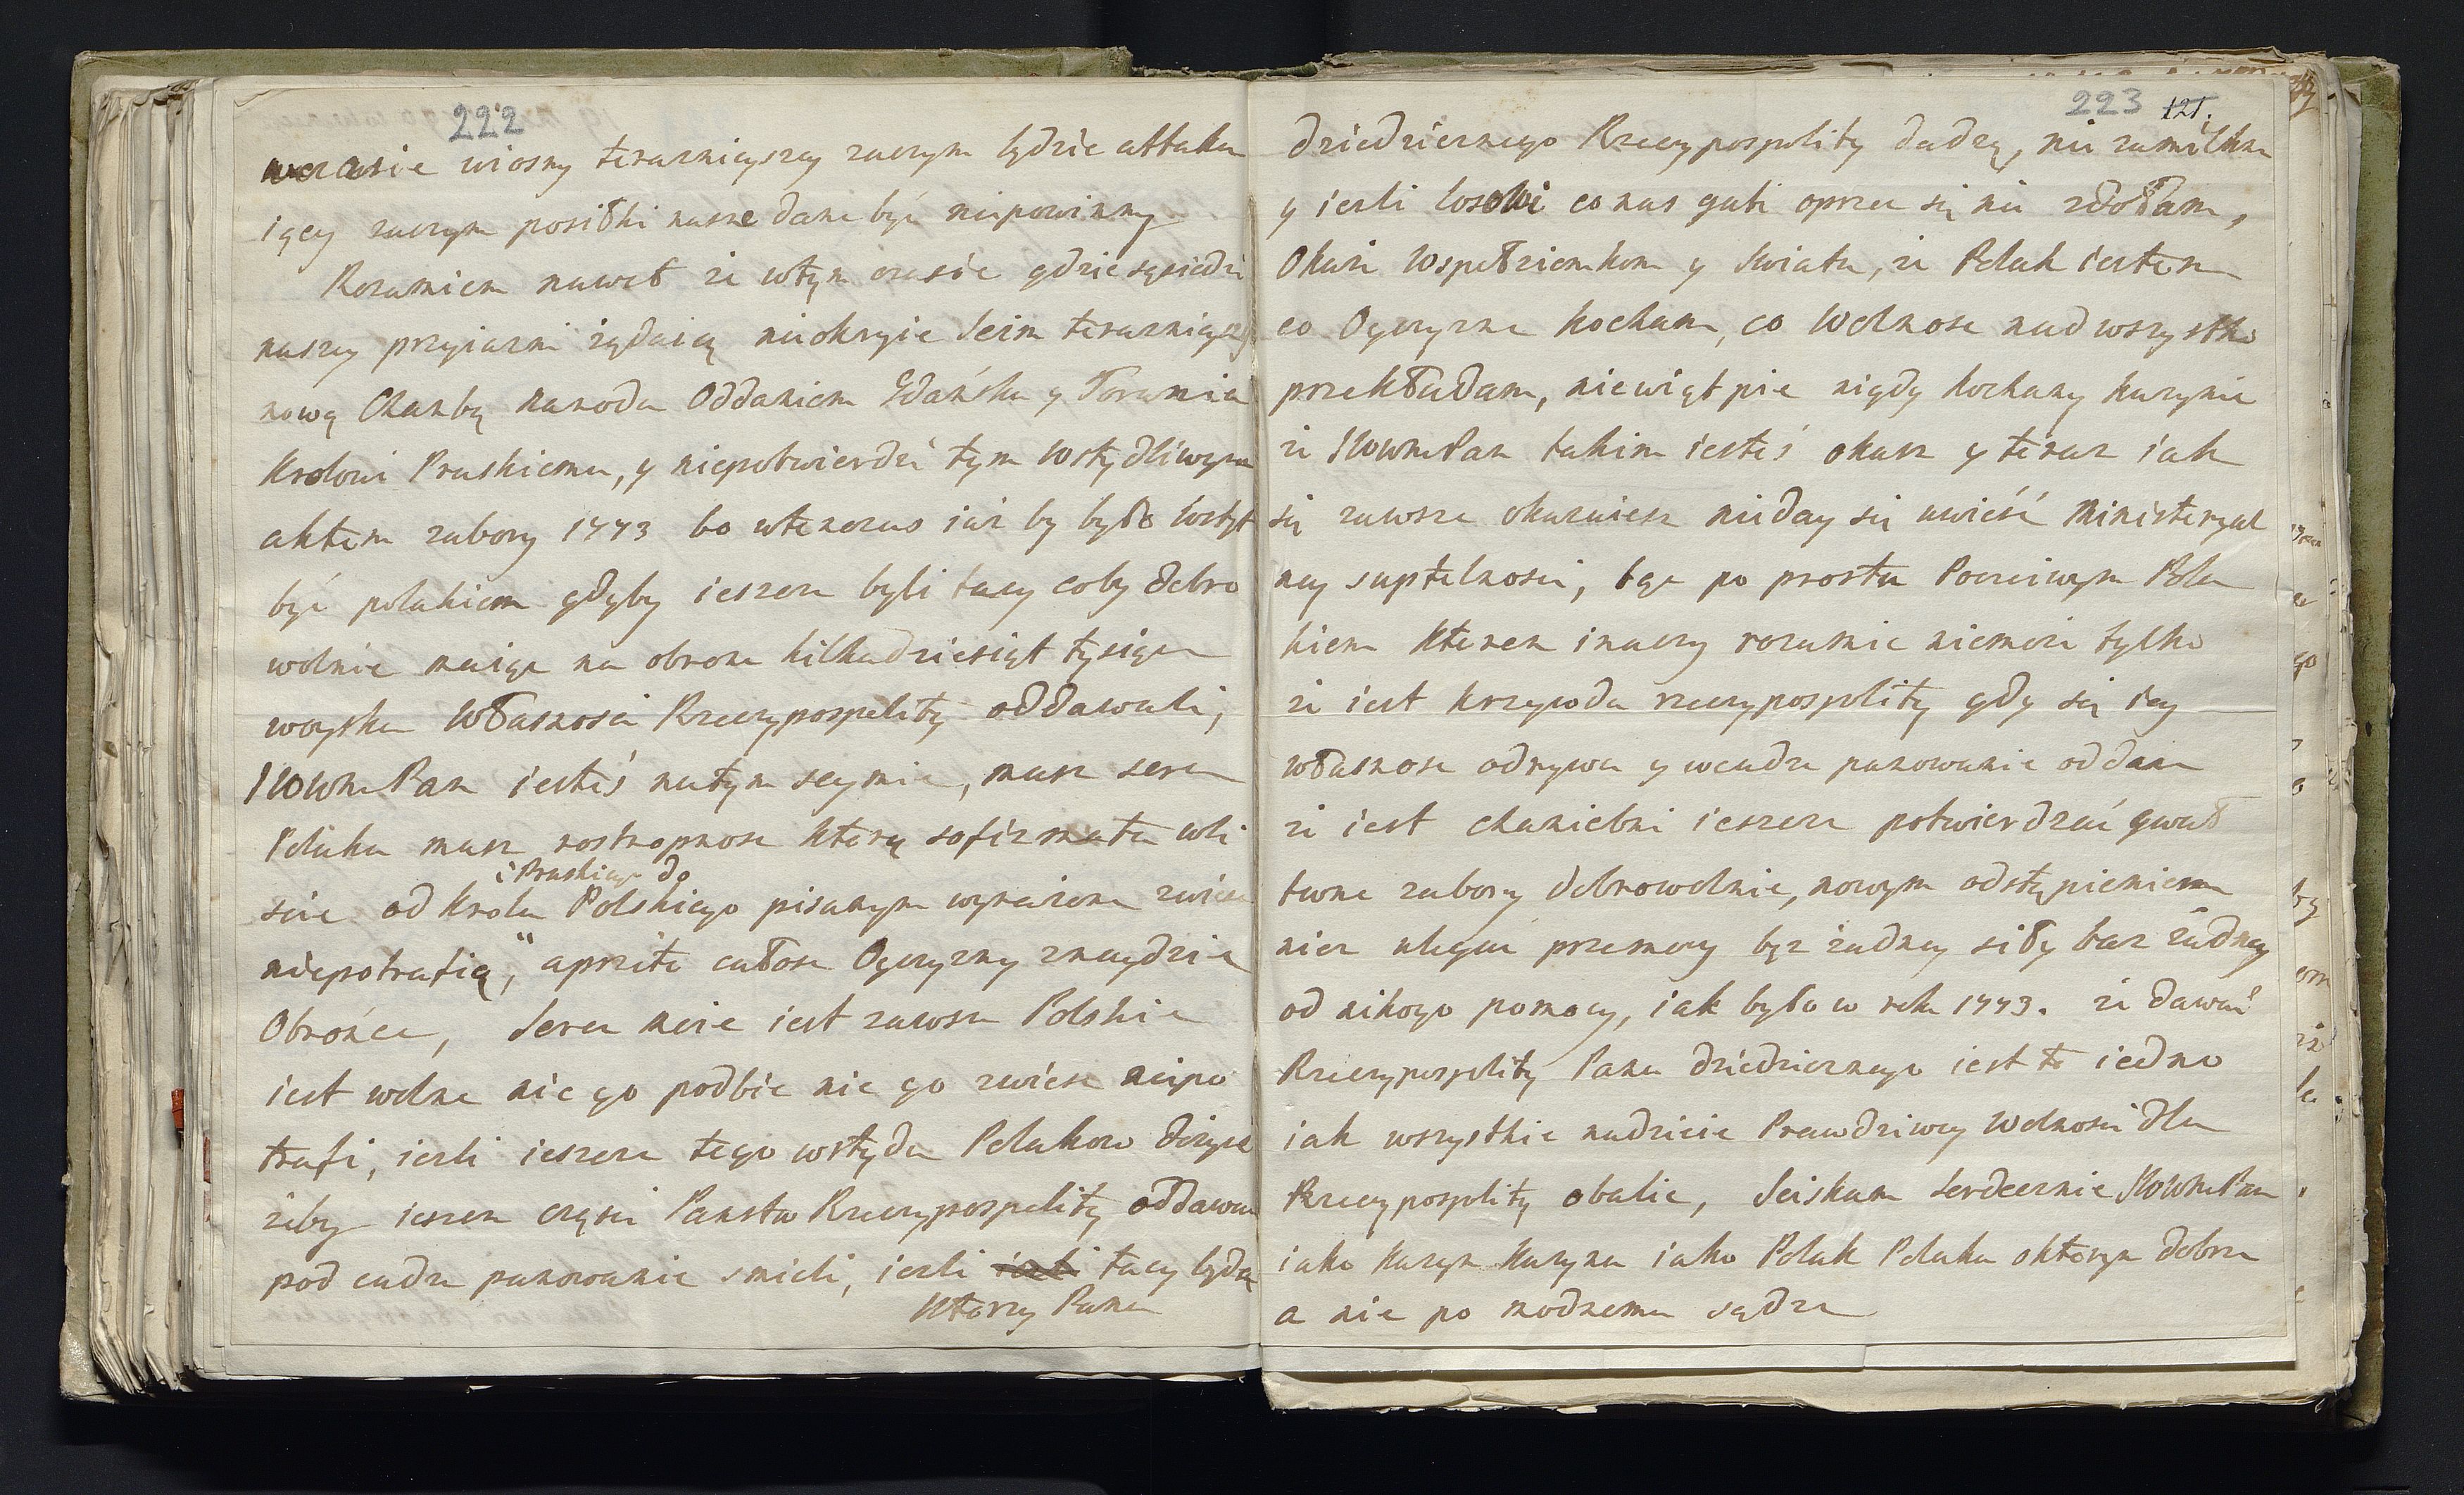 222
wczasie wiosny terazniejszey zaczym będzie attaku
iący zaczym posiłki nasze dane być niepowinny
Rozumiem nawet że wtym czasie gdzie sąsiedzi
naszey przyiazni żądaią nieokryie Seim teraznieyszy
nową Chanbą Narodu Oddaniem Gdańska y Torunia
Krolowi Pruskiemu, y niepotwierdzi tym Wstydliwym
aktem zabory 1773 bo wtenczas iuż by było Wstyt
być polakiem gdyby ieszcze byli tacy coby dobro
wolnie maiąc na obrone kilkadziesiąt tysięcy
woyska Własnosci Rzeczypospolity oddawali,
JWWM Pan iesteś natym seymie, masz serce
Polaka masz rostropnosc ktorą sofizmata wli
scie od Krola i Pruskiego do Polskiego pisanym wyrażone zwiesc
niepotrafią, aprzeto całosc Oyczyzny znaydzie
Obrońce, Serce moie iest zawsze Polskie
iest wolne nic go podbic nic go zwiesc niepo
trafi, iesli ieszcze tego wstydu Polakow dożyie
żeby ieszcze części Panstw Rzeczypospolity oddawac
pod cudze panowanie smieli, iesli iesli tacy będą
Ktorzy Pana
223 121.
dziedzicznego Rzeczypospolity dadzą, nie zamilkne
y iesli losowi co nas gubi oprzec się nie zdołam,
Okaże Wspołziomkom y Swiatu, że Polak iestem
co Oyczyzne kocham, co Wolnosc nad wszystko
przekładam, niewiąt pie nigdy kochany Kuzynie
że JWWM Pan takim iesteś okasz y teraz iak
się zawsze okazuiesz nieday się uwieść Ministeryal
ney suptelnosci, bąc po prostu Poczciwym Pola
kiem Ktoren inaczy rozumiec niemoże tylko
że iest krzywda rzeczypospolity gdy się iey
własnosc odrywa y wcudze panowanie oddaie
że iest chaniebni ieszcze potwierdzać gwał
towne zabory dobrowolnie, nowym odstąpieniem
niz ulegac przemocy bez żadney siły bez żadney
od nikogo pomocy, iak było w roku 1773. że dawać
Rzeczypospolity Pana dziedzicznego iest to iedno
iak wszystkie nadzieie Prawdziwey Wolnosci dla
Rzeczypospolity obalic, Sciskam Serdecznie JWWM Pana
iako Kuzyn Kuzyna iako Polak Polaka oktorym dobrze
a nie po modnemu sądze